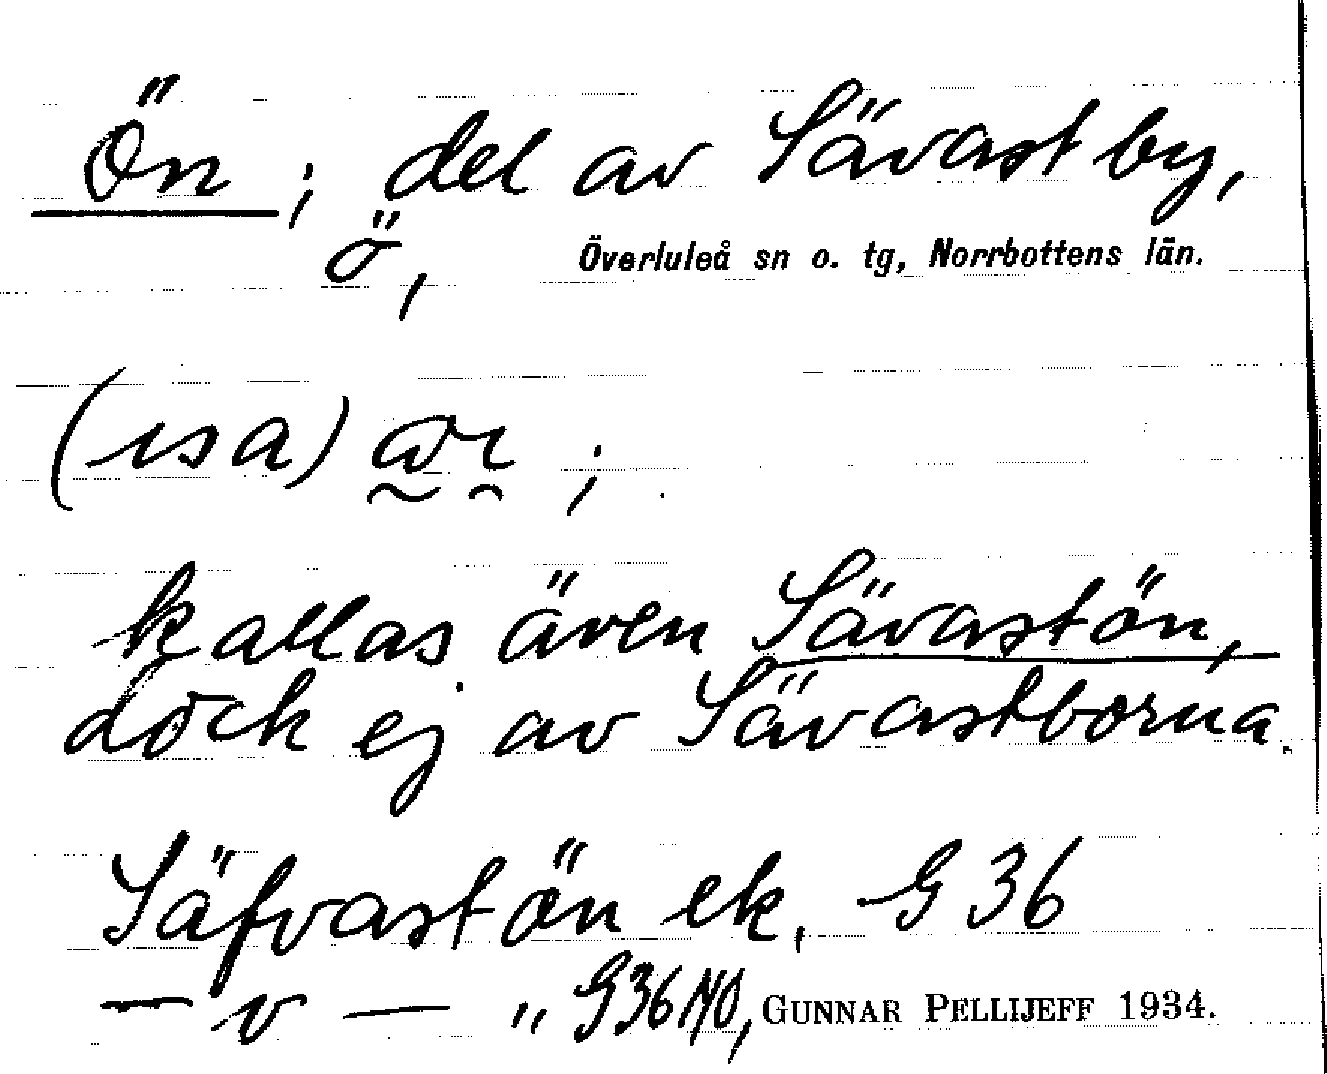 Ön ; del av Sävast by,
ö, Överluleå sn o. tg, Norrbottens län.
(ısa)
kallas även Sävastön,
dock ej av Sävastborna.
Säfvastön ek. G 36
— v — „ G36 NO, GUNNAR PELLIJEFF 1934.